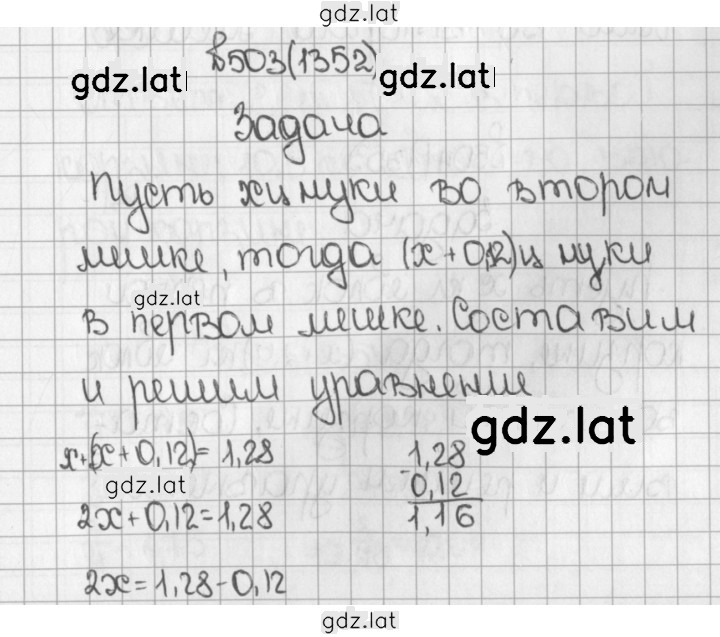 gdz.lat
№503(1352)
gdz.lat
gdz.lat
Задача
Пусть х ц муки во втором
мешке, тогда (х+0,12)ц муки
gdz.lat
в первом мешке. Составим
и решим уравнение
gdz.lat
х+(х+0,12)=1,28
1,28
gdz.lat
-0,12
2х+0,12=1,28
1,16
2х=1,28-0,12
gdz.lat